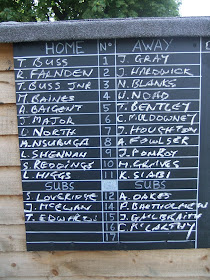 HOME Nº AWAY
T. BUSS 1 J. GRAY
R. FALNDEN 2 J. HARDWICK
T. BUSS JNR 3 N. BLANKS
M. BAINES 4 H. NOAD
V. BAIGENT 5 T. BENTLEY
J. MAJOR 6 C. MULDOWNEY
L. NORTH 7 J. HOUGHTON
A. NSUBUGA 8 A. FOWLSER
L. SHENNAN 9 J. POMROY
S. REDDINGS 10 M. GRAVES
L. HIGGS 11 K. SIABI
SUBS SUBS
S. LOVERIDGE 12 A. OAKES
J. MCCLEAN 14 P. BARTHOLOMEW
T. EDWARDS 15 J. GALBRAITH
16 C. MCCARTHY
17